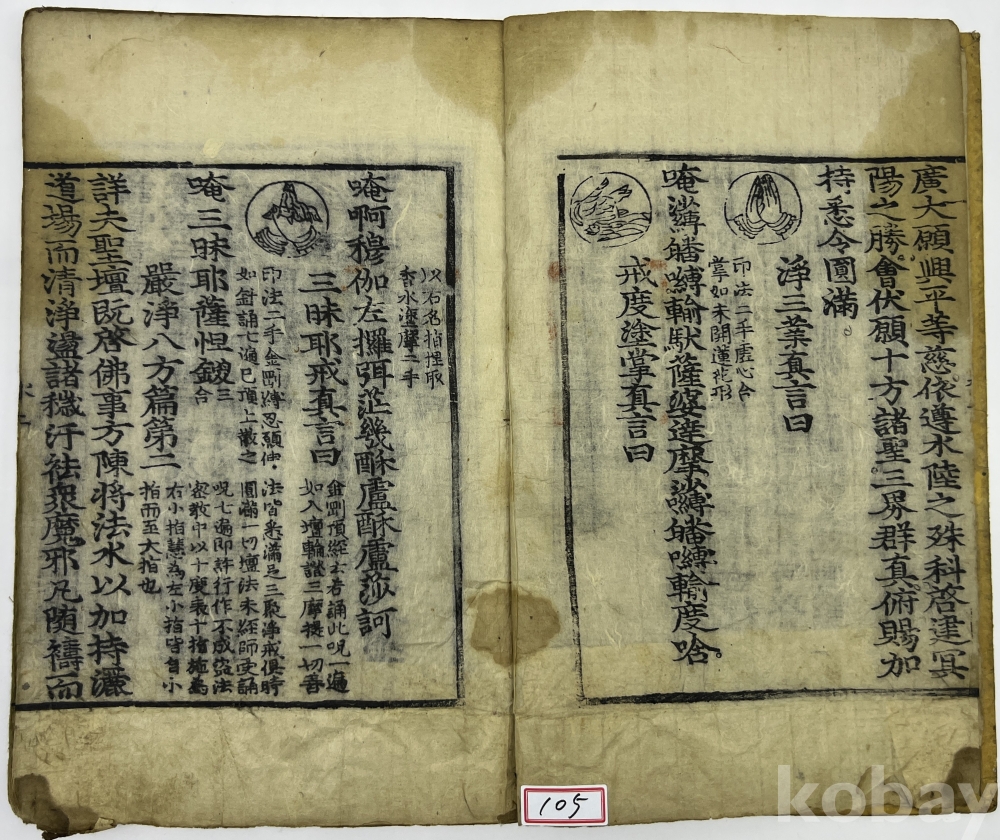 廣大願興平等慈依遵水陸之殊科啓建冥
陽之勝會伏願十方諸聖三界群真俯賜加
持悉令圓滿
淨三業真言曰
印法二手虛心合
掌如未開蓮花形
唵薩嚩皤嚩輸馱薩婆達摩薩嚩皤嚩輸度唅
戒度塗掌真言曰
以右名指捏取
香水塗摩二手
唵啊穆伽左攞弭𦬆幾酥盧酥盧莎訶
三昧耶戒真言曰
金剛頂經云若誦此呪一遍
如入壇輪證三摩提一切善
印法二手金剛縛忍願伸
如針誦七遍已頂上散之
法皆悉滿足三聚淨戒俱時
圓滿一切壇法未經師受誦
唵三昧耶薩怛鍐三合
呪七遍即許行作不成盜法
密教中以十度表十指施為
嚴淨八方篇第二
右小指慧為左小指皆自小
指而至大指也
詳夫聖壇既啓佛事方陳將法水以加持灑
道場而清淨盪諸穢汗袪衆魔邪凡隨禱而
105
kobay